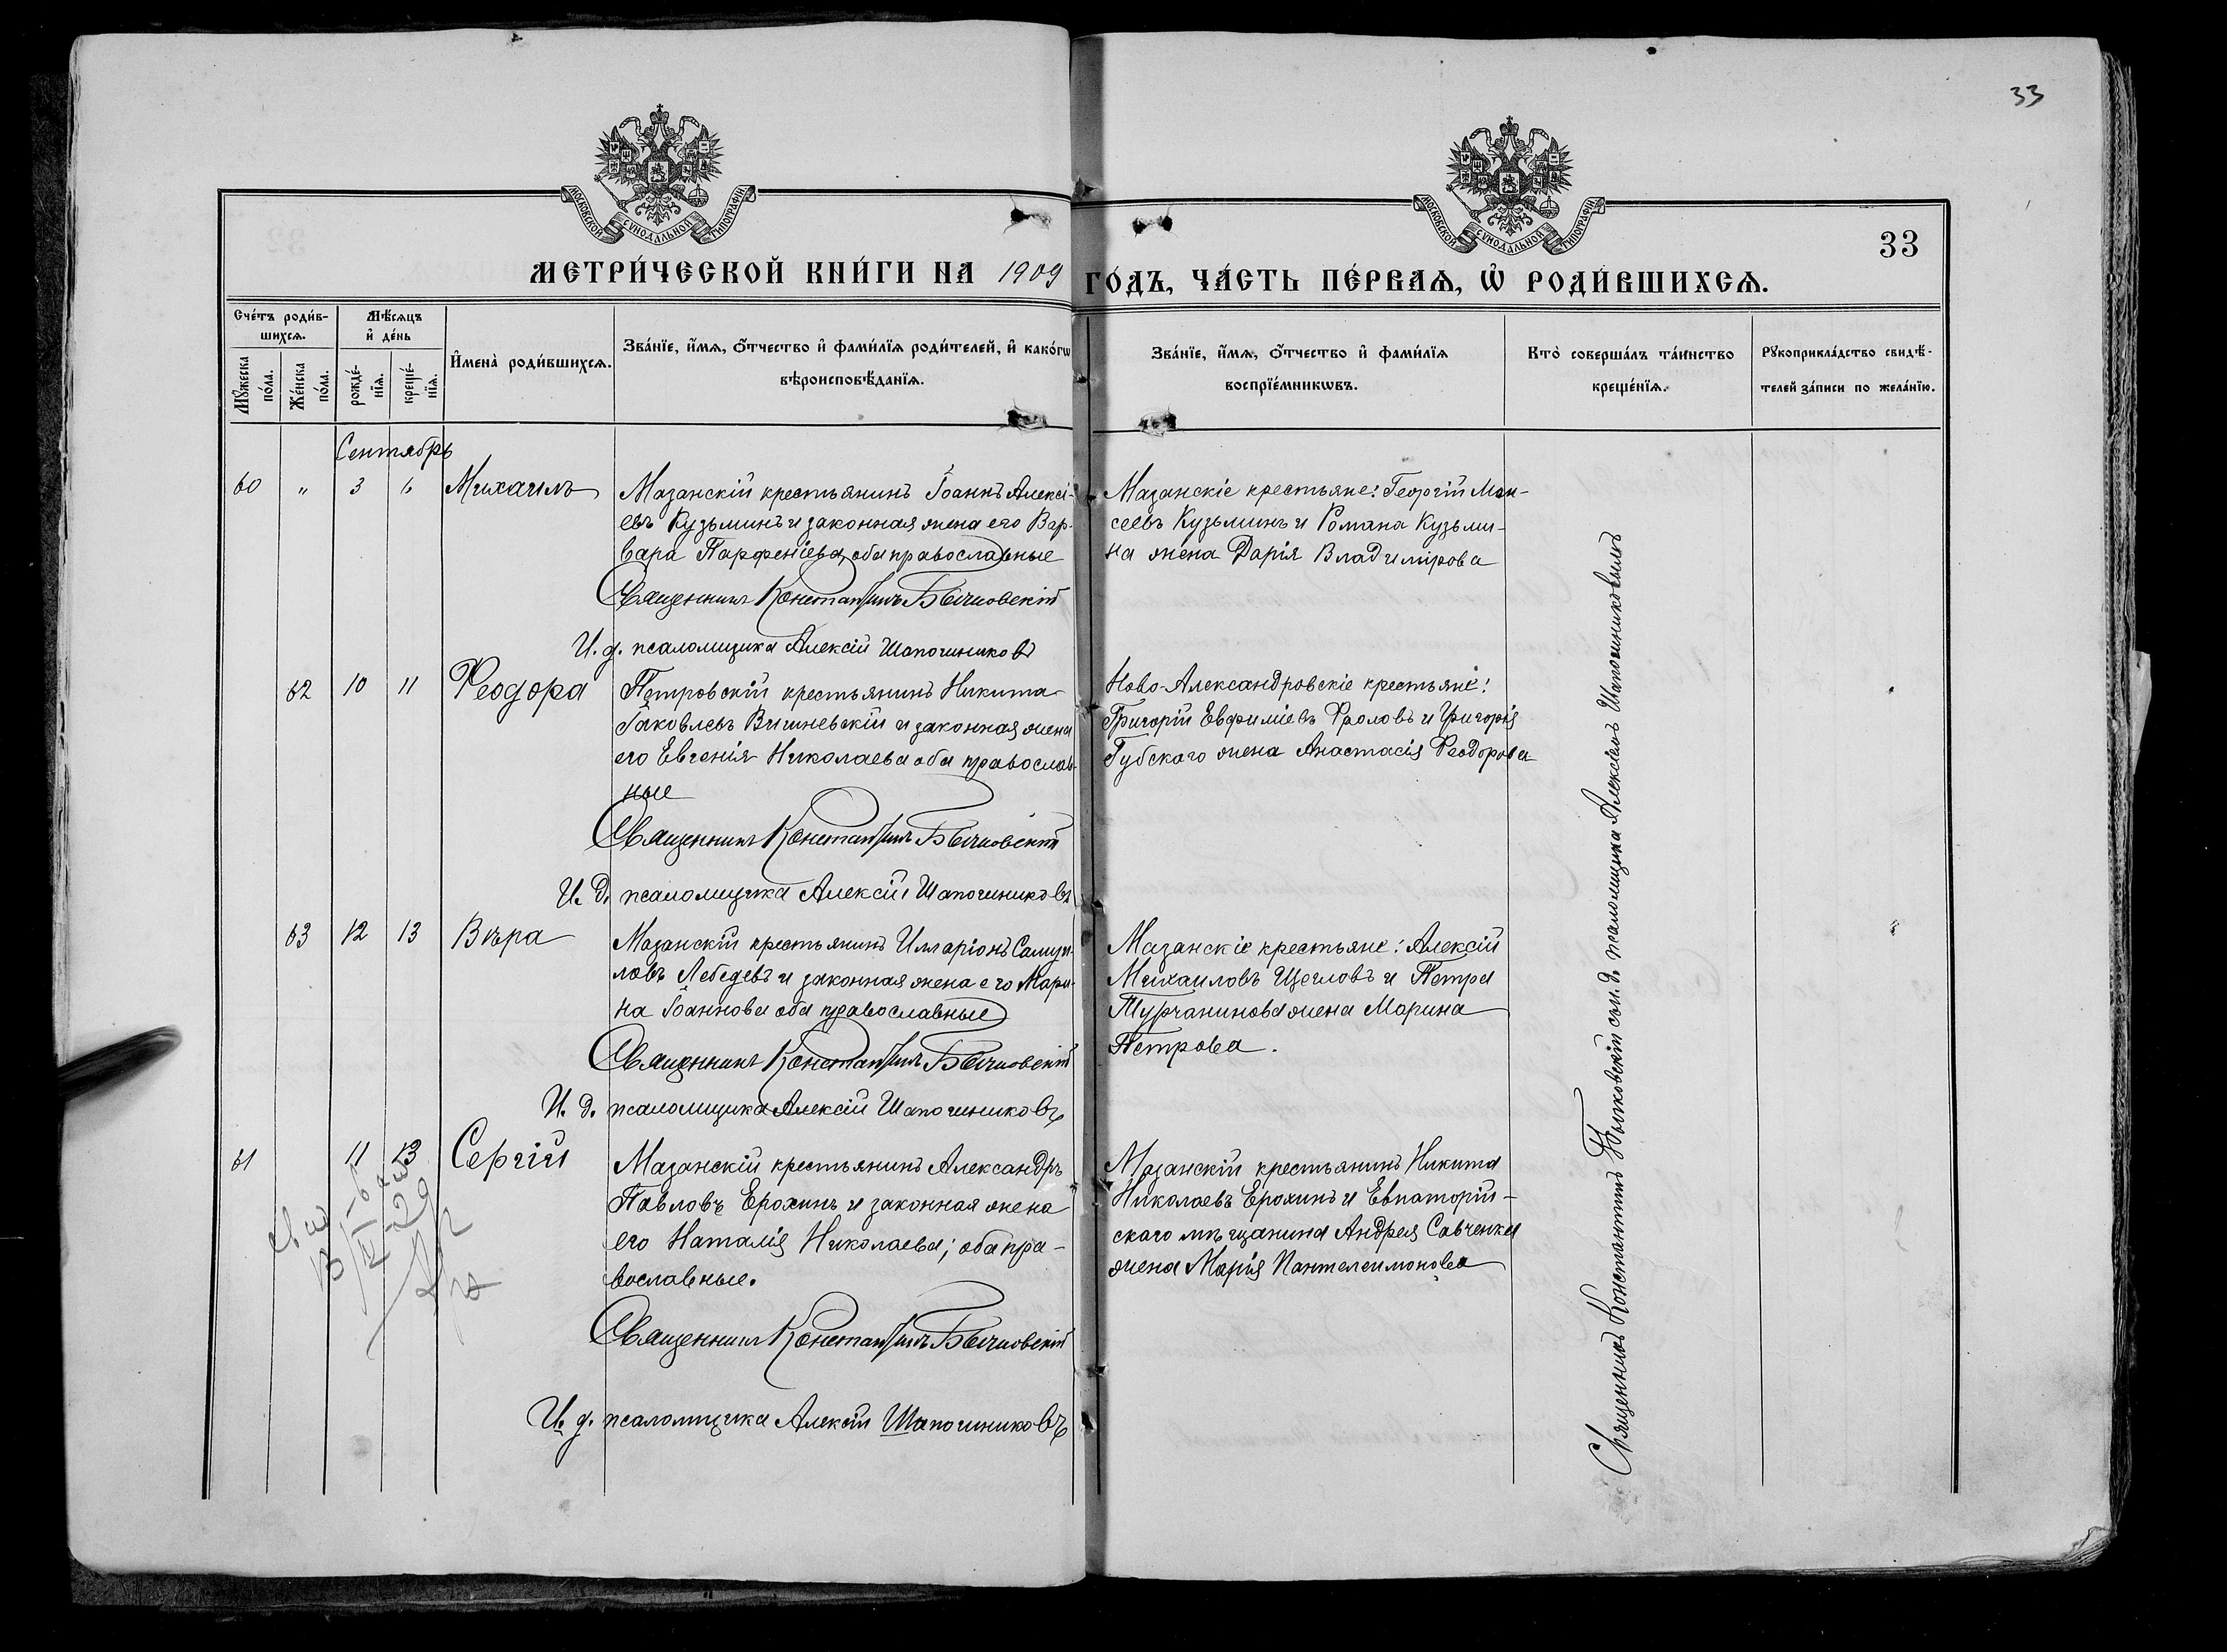 33
МОСКОВСКОЙ СѴНОДАЛЬНОЙ ТИПОГРАФІИ
МОСКОВСКОЙ СѴНОДАЛЬНОЙ ТИПОГРАФІИ
33
МЕТРИ́ЧЕСКОЙ КНИ́ГИ НА 1909 ГО́ДЪ, ЧА́СТЬ ПЕ́РВАѦ, Ѡ҆ РОДИ́ВШИХСѦ.
Сче́тъ роди́в-
шихсѧ.
Мѣ́сѧцъ
и҆ де́нь
Мꙋ́жеска
по́ла.
Же́нска
по́ла.
рожде́-
нїѧ.
креще́-
нїѧ.
И҆мена̀ роди́вшихсѧ.
Зва́нїе, и҆́мѧ, ѻ҆́тчество и҆ фами́лїѧ роди́телей, и҆ како́гѡ
вѣроисповѣ́данїѧ.
Зва́нїе, и҆́мѧ, ѻ҆́тчество и҆ фами́лїѧ
воспрїе́мникѡвъ.
Кто̀ соверша́лъ та́инство
креще́нїѧ.
Рꙋкоприкла́дство свидѣ́-
телей за́писи по жела́нїю.
Сентябрь
60 " 3 6 Михаилъ
Мазанскій крестьянинъ Іоаннъ Алексі-
евъ Кузьминъ и законная жена его Вар-
вара Парфеніева, оба православные
Священникъ Константинъ Бычковскій
И. д. псаломщика Алексій Шапошниковъ
Мазанскіе крестьяне: Георгій Мои-
сеевъ Кузьминъ и Романа Кузьми-
на жена Дарія Владимірова
62 10 11 Ѳеодора
Петровскій крестьянинъ Никита
Іаковлевъ Вишневскій и законная жена
его Евгенія Николаева оба православ-
ные
Священникъ Константинъ Бычковскій
И. д. псаломщика Алексій Шапошниковъ
Ново-Александровскіе крестьяне:
Григорій Евфиміевъ Фроловъ и Григорія
Губскаго жена Анастасія Ѳеодорова
63 12 13 Вѣра
Мазанскій крестьянинъ Илларіонъ Самуи-
ловъ Лебедевъ и законная жена его Мари-
на Іоаннова оба православные
Священникъ Константинъ Бычковскій
И. д. псаломщика Алексій Шапошниковъ
Мазанскіе крестьяне: Алексій
Михаиловъ Щегловъ и Петра
Турчанинова жена Марина
Петрова.
61 11 13 Сергій
Мазанскій крестьянинъ Александръ
Павловъ Ерохинъ и законная жена
его Наталія Николаева; оба пра-
вославные.
Священникъ Константинъ Бычковскій
И. д. псаломщика Алексій Шапошниковъ
Мазанскій крестьянинъ Никита
Николаевъ Ерохинъ и Евпаторій-
скаго мѣщанина Андрея Савченка
жена Марія Пантелеимонова
Священникъ Константинъ Бычковскій съ и. д. псаломщика Алексіемъ Шапошниковымъ